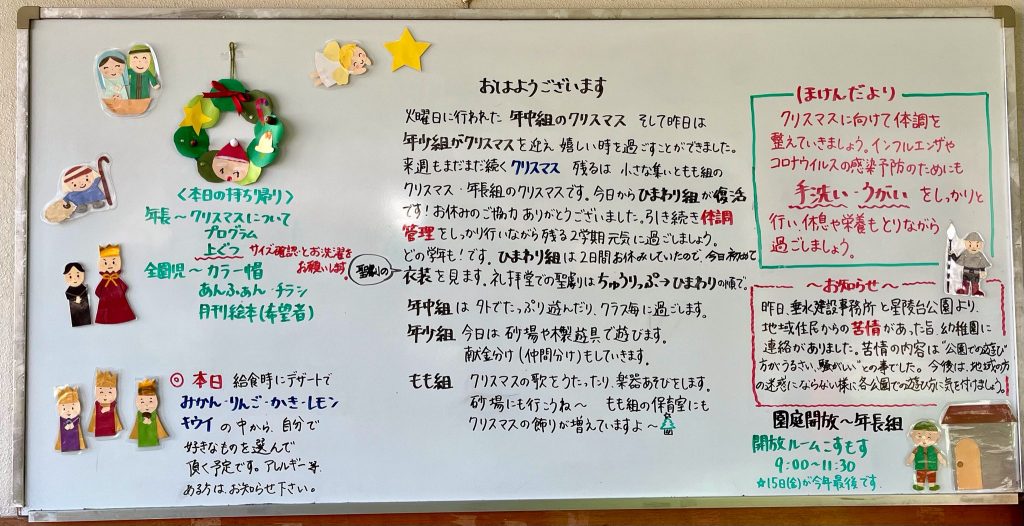 〈本日の持ち帰り〉
年長～クリスマスについて
プログラム
上ぐつ サイズ確認・とお洗濯を
お願いします。
全園児～カラー帽
あんふぁん・チラシ
月刊絵本(希望者)
◎本日 給食時にデザートで
みかん・りんご・かき・レモン
キウイ の中から、自分で
好きなものを選んで
頂く予定です。アレルギー等、
ある方は、お知らせ下さい。
おはようございます
火曜日に行われた 年中組のクリスマス そして昨日は
年少組がクリスマスを迎え 嬉しい時を過ごすことができました。
来週もまだまだ続く クリスマス 残るは 小さな集いともも組の
クリスマス・年長組のクリスマスです。今日から ひまわり組が復活
です！お休みのご協力 ありがとうございました。引き続き 体調
管理をしっかり行いながら残る2学期元気に過ごしましょう。
どの学年も！です。ひまわり組は2日間お休みしていたので、今日初めて
聖劇の
衣装を見ます。礼拝堂での聖劇は ちゅうりっぷ→ひまわりの順で。
年中組は 外でたっぷり遊んだり、クラス毎に過ごします。
年少組 今日は 砂場や木製遊具で遊びます。
献金分け(仲間分け)もしています。
もも組 クリスマスの歌をうたったり、楽器あそびをします。
砂場にも行こうね～ もも組の保育室にも
クリスマスの飾りが増えていますよ～
ほけんだより
クリスマスに向けて体調を
整えていきましょう。インフルエンザや
コロナウイルスの感染予防のためにも
手洗い・うがい をしっかりと
行い、休息や栄養もとりながら
過ごしましょう。
～お知らせ～
昨日、垂水建設事務所と星陵台公園より、
地域住民からの苦情があった旨、幼稚園に
連絡がありました。苦情の内容は"公園での遊び
方がうるさい、騒がしい"との事でした。今後は、地域の方
の迷惑にならない様に各公園での遊び方に気を付けましょう。
園庭開放～年長組
開放ルームこすもす
9:00～11:30
☆15日(金)が今年最後です